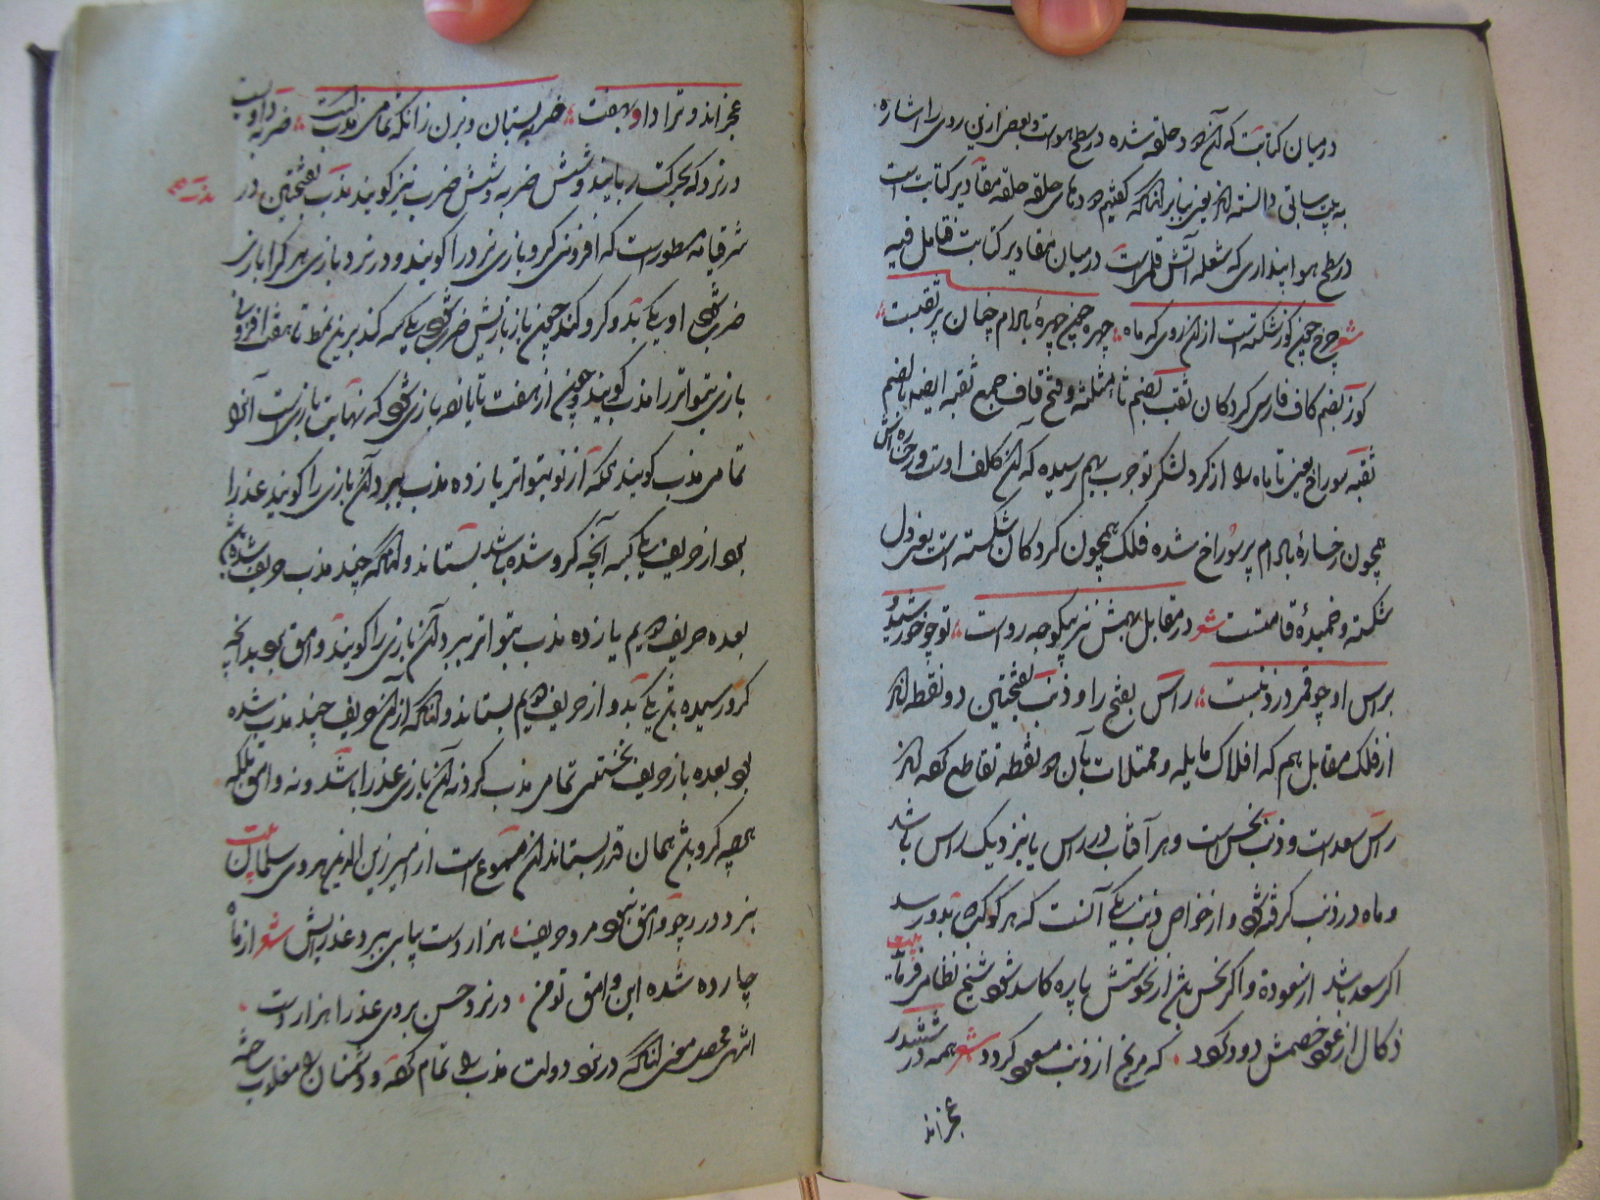 درمیان کتابت که آن دو حلقه شده در سطح هواست و بعضی ازین روی را اشاره
دانسته اند یعنی بنابر آنکه کفتیم دو دنهای حلقه حلقه مقادیر کتابت است
در سطح هوا پنداری که شعله آتش قلم است درمیان مقادیر کتابت فتامل فیه
شعر چرخ چون کوز شکسته است ازان روی که ماه چهره چون چهره بادام چنان پر ثقبست
کوز بضم کاف فارسی کردکان ثقب بضم ثا مثلثه و فتح قاف جمع ثقبه ایضا بالضم
ثقبه سوراخ یعنی تا ماه را از کرد لشکر تو جرب بهم رسیده که آن کلف اوست و رخساره اش
همچون رخساره بادام پر سوراخ شده فلک همچون کردکان شکسته است یعنی دل
شکسته و خمیده قامتست شعر در مقابل نیکو چه رواست تو چو خورشید
براس او چو قمر در ذنبست راس بفتح را و ذنب بفتحتین دو نقطه اند
از فلک مقابل هم که افلاک مایله و ممثلات بآن دو نقطه تقاطع کرده اند
راس سعد است و ذنب نحس است و هر آفتاب در راس یا نزدیک راس باشد
و ماه در ذنب کرفته شود و از خواص ذنب یکی آنست که هر کوکب بدو رسد
اگر سعد باشد از سعود و اگر نحس باشد از نحوستش پاره کاسد شود شیخ نظامی فرماید بیت
ذکال از عود خصمش دود کردد که مریخ از ذنب مسعود کردد شعر همه در ششدر
عجزاند
عجزاند و ترا داو بهفت ضربه بستان و بزن زانکه تمامی ندب است ضربه داویست
در نرد که بحرکت ربایند و شش ضربه و شش ضرب نیز کویند ندب بفتحتین در
ندب
شرفنامه مسطور است که افزونی کرو بازی نرد را کویند و در نرد بازی هر کرا بازی
ضرب شود او یکی بدو کرو کند چون باز بازیش ضرب شود یکی سه کند برین نمط تا هفت افزونی
بازی متواتر را ندب کویند و چون از هفت تا یازده بازی شود که نهایت بازی است آنرا
تمامی ندب کویند بلکه آن نو بتواتر یازده ندب ببرد آن بازی را کویند عذرا
بود از حریف یکی بسه آنچه کرو شده باشد بستاند و آنکه چند ندب حریف شده باشد
بعده حریف دویم یازده ندب بتواتر ببرد آن بازی را کویند وامق بود آنچه
کرو رسیده باشد یکی بدو از حریف دویم بستاند و آنکه ازان حریف چند ندب شده
بود بعده باز حریف تمامی ندب کردند آن بازی عذرا باشد و نه وامق بلکه
همچه کرو باشد همان قدر بستاند این مسموع است از امیر زین الدین هروی سلمان بیت
بنرد در چو وامق شود مرد حریف هزار دست پیاپی ببرد عذرایش شعر از ماه
چارده شده این وامق تو من در نرد حسن بردی عذرا هزار دست
انتهی محصل معنی آنکه در نرد دولت ندب را تمام کرده و دشمنان را مغلوب ساخته